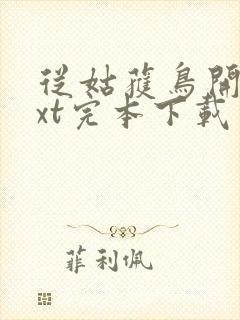 從姑獲鳥開
xt完本下載
菲利佩